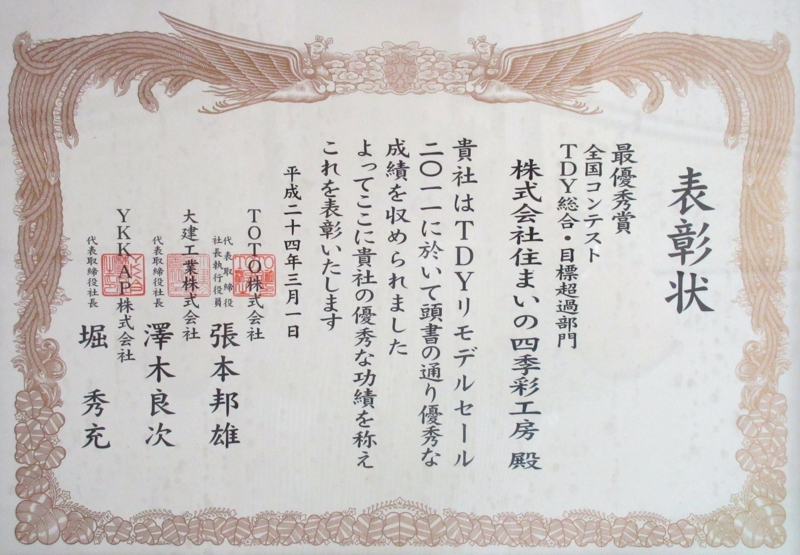 表彰状
最優秀賞
全国コンテスト
TDY総合・目標超過部門
株式会社住まいの四季彩工房 殿
貴社はTDYリモデルセール
二〇一一に於いて頭書の通り優秀な
成績を収められました
よってここに貴社の優秀な功績を称え
これを表彰いたします
平成二十四年三月一日
TOTO株式会社
代表取締役
社長執行役員
張本邦雄
大建工業株式会社
代表取締役社長
澤木良次
YKK AP株式会社
代表取締役社長
堀 秀充